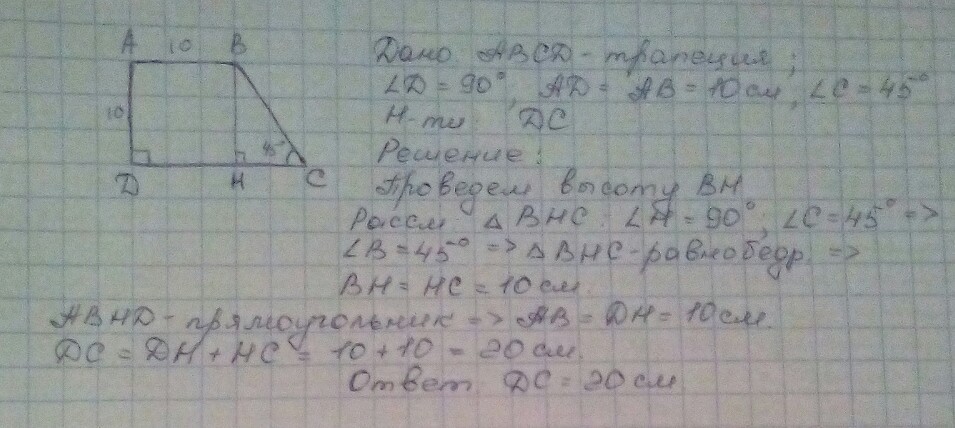 A 10 B
10
45°
D H C
Дано ABCD - трапеция;
∠D = 90°, AD = AB = 10 см, ∠C = 45°
Н-ти DC
Решение:
Проведем высоту BH
Рассм △ BHC: ∠H = 90°; ∠C = 45° =>
∠B = 45° => △ BHC - равнобедр. =>
BH = HC = 10 см.
ABHD - прямоугольник => AB = DH = 10 см.
DC = DH + HC = 10 + 10 = 20 см.
Ответ DC = 20 см